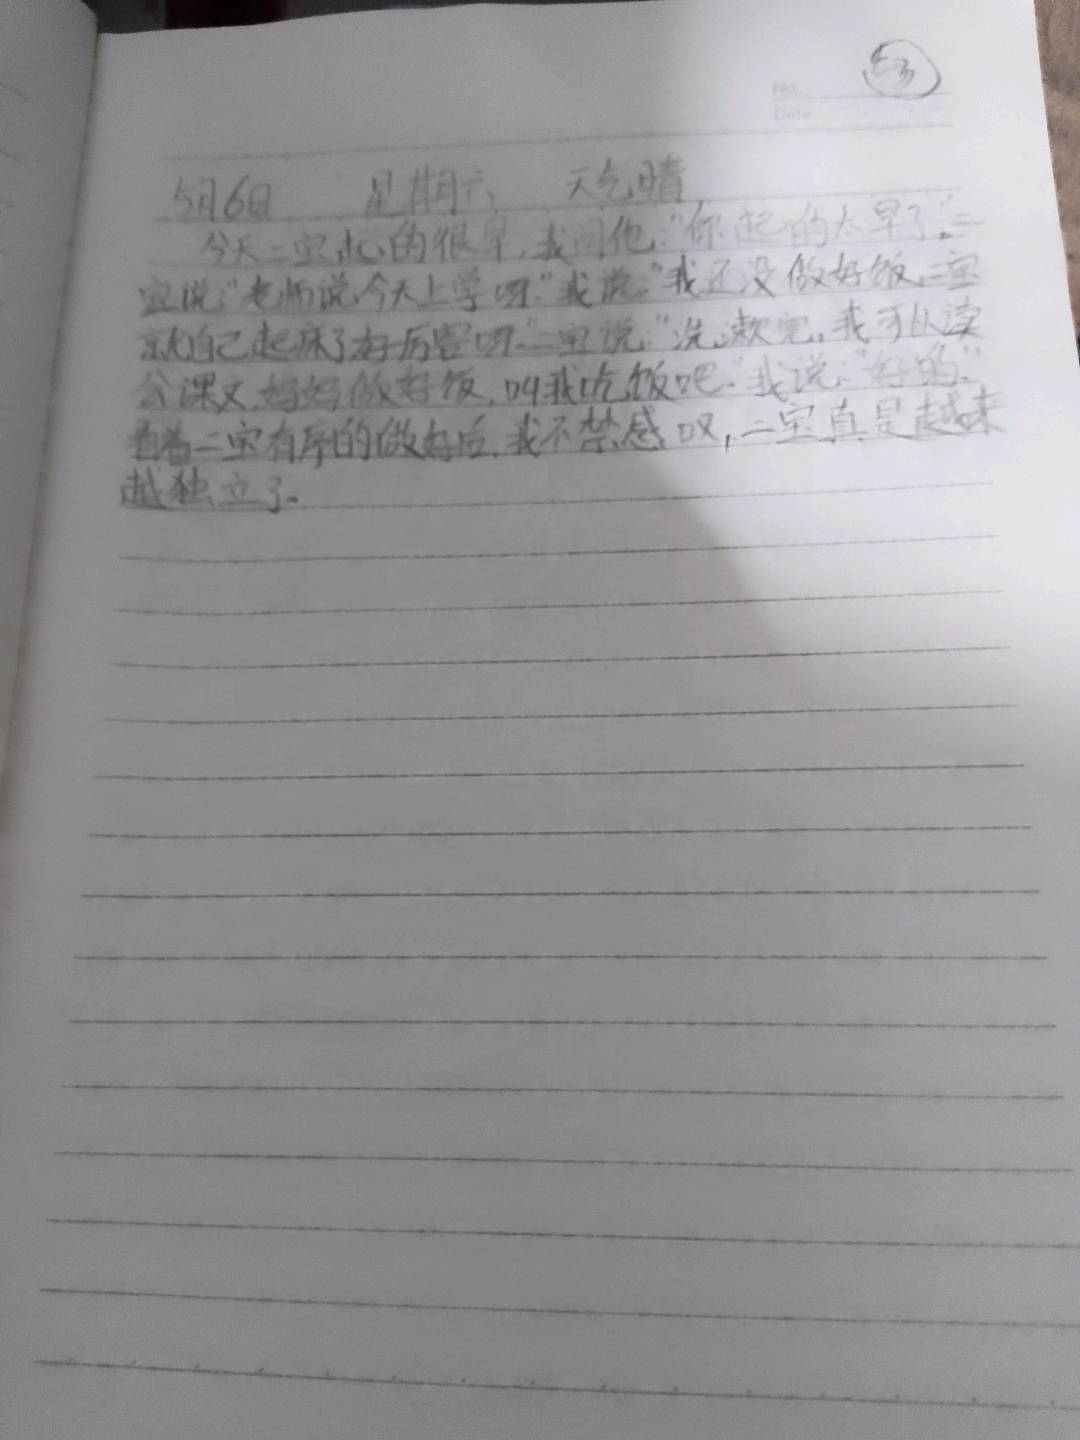 53
No.
Date
5月6日 星期六 天气晴
今天二宝起的很早,我问他:"你起的太早了"二
宝说:"老师说,今天上学呀."我说:"我还没做好饭,二宝
就自己起床了好厉害呀."二宝说:"洗漱完,我可以读
会课文,妈妈做好饭,叫我吃饭吧."我说:"好的."
看着二宝有序的做好后,我不禁感叹,二宝真是越来
越独立了。